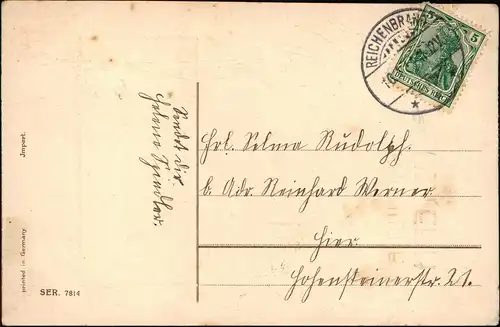 REICHENBRAND
5
DEUTSCHES REICH
Frl. Selma Rudolph.
b. Adr. Reinhard Werner
Hier
Hohensteinerstr. 21.
Sendet dir
Helene Spindler.
Import.
printed in Germany
SER. 7814